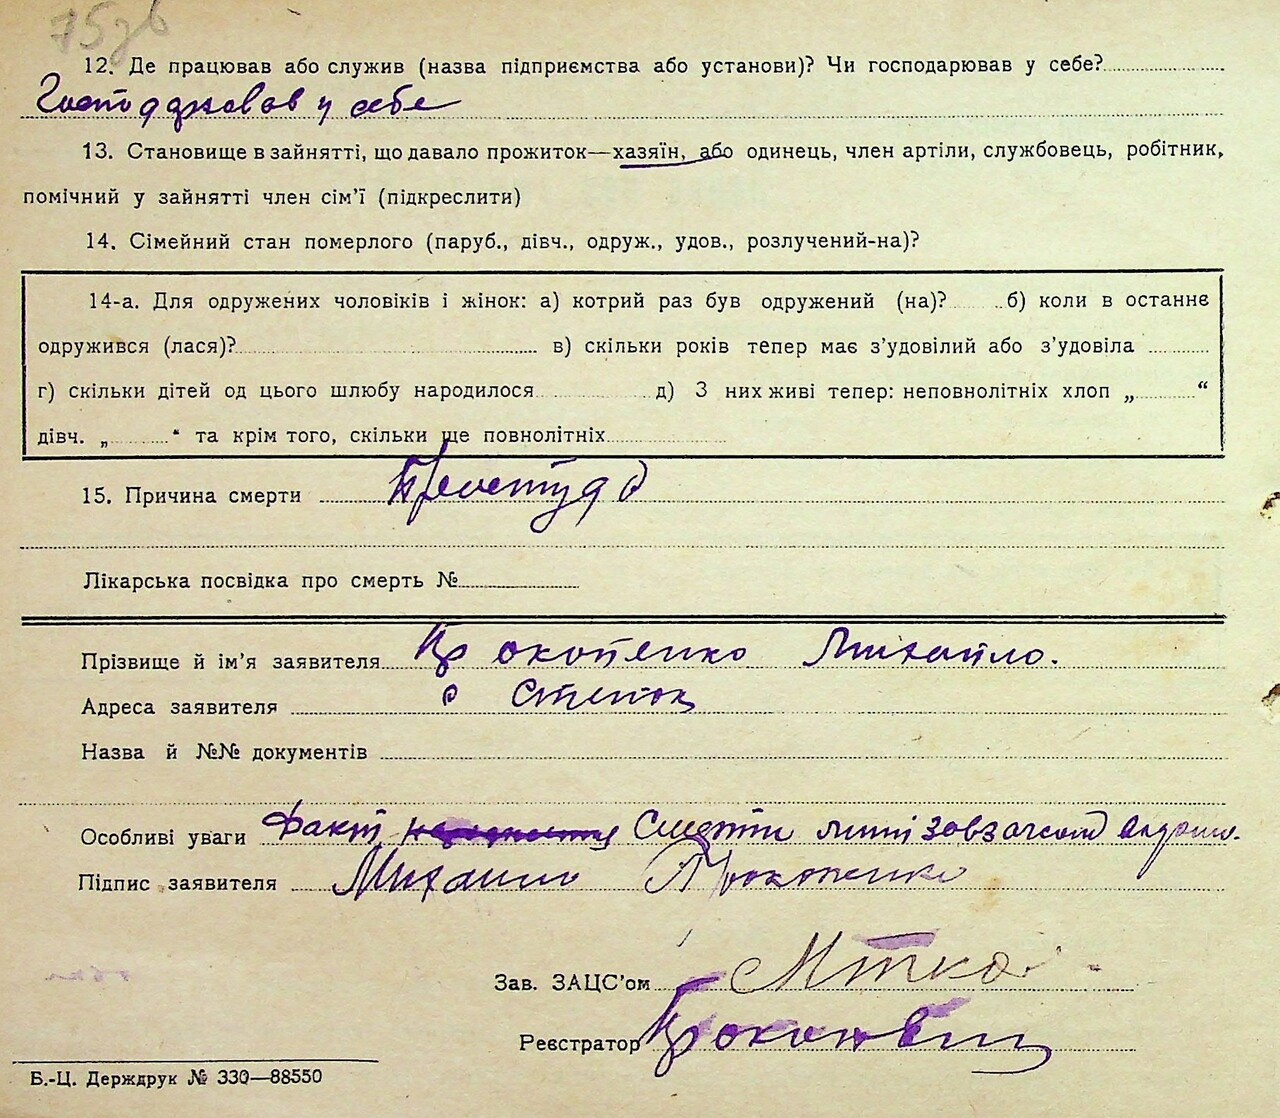 12. Де працював або служив (назва підприємства або установи)? Чи господарював у себе?
Господарював у себе
13. Становище в зайнятті, що давало прожиток—хазяїн, або одинець, член артілі, службовець, робітник,
помічний у зайнятті член сім'ї (підкреслити)
14. Сімейний стан померлого (паруб., дівч., одруж., удов., розлучений-на)?
14-а. Для одружених чоловіків і жінок: а) котрий раз був одружений (на)? б) коли в останнє
одружився (лася)? в) скільки років тепер має з'удовілий або з'удовіла
г) скільки дітей од цього шлюбу народилося д) З них живі тепер: неповнолітніх хлоп „ “
дівч. „ “ та крім того, скільки ще повнолітніх
15. Причина смерти Простуда
Лікарська посвідка про смерть №
Прізвище й ім'я заявителя Прокопенко Михайло.
Адреса заявителя с Степок
Назва й №№ документів
Особливі уваги Факт смерти
Підпис заявителя Михайло Прокопенко
Зав. ЗАЦС'ом
Реєстратор
Б.-Ц. Держдрук № 330—88550